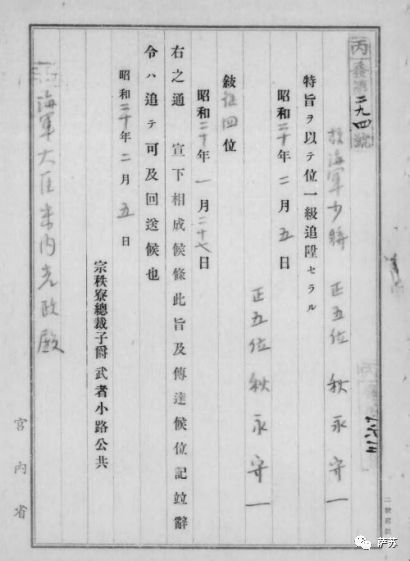 丙 二九四號
故海軍少將 正五位 秋永守一
特旨ヲ以テ位一級追陞セラル
昭和二十年二月五日
正五位 秋永守一
敍從四位
昭和二十年一月二十七日
右之通 宣下相成候條此旨及傳達候位記竝辭
令ハ追テ可及回送候也
昭和二十年二月五日
宗秩寮總裁子爵 武者小路公共
海軍大臣米内光政殿
宮内省
萨苏